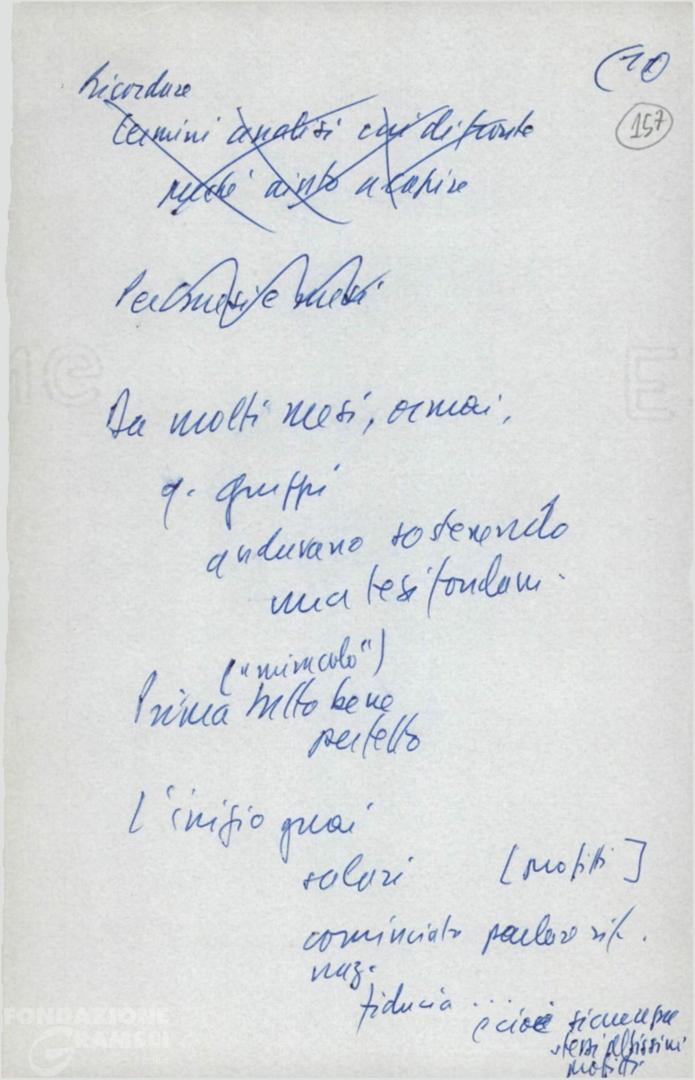 (10
157
Ricordare
termini analisi cui di fronte
perché aiuto a capire
Per mesi e mesi
Da molti mesi, ormai,
q. gruppi
andavano sostenendo
una tesi fondam.
("miracolo")
Prima tutto bene
perfetto
L'inizio guai
salari [profitti]
cominciato parlare rif.
naz.
fiducia ...
e cioè sicurezza
stessi altissimi
profitti
FONDAZIONE
GRAMSCI